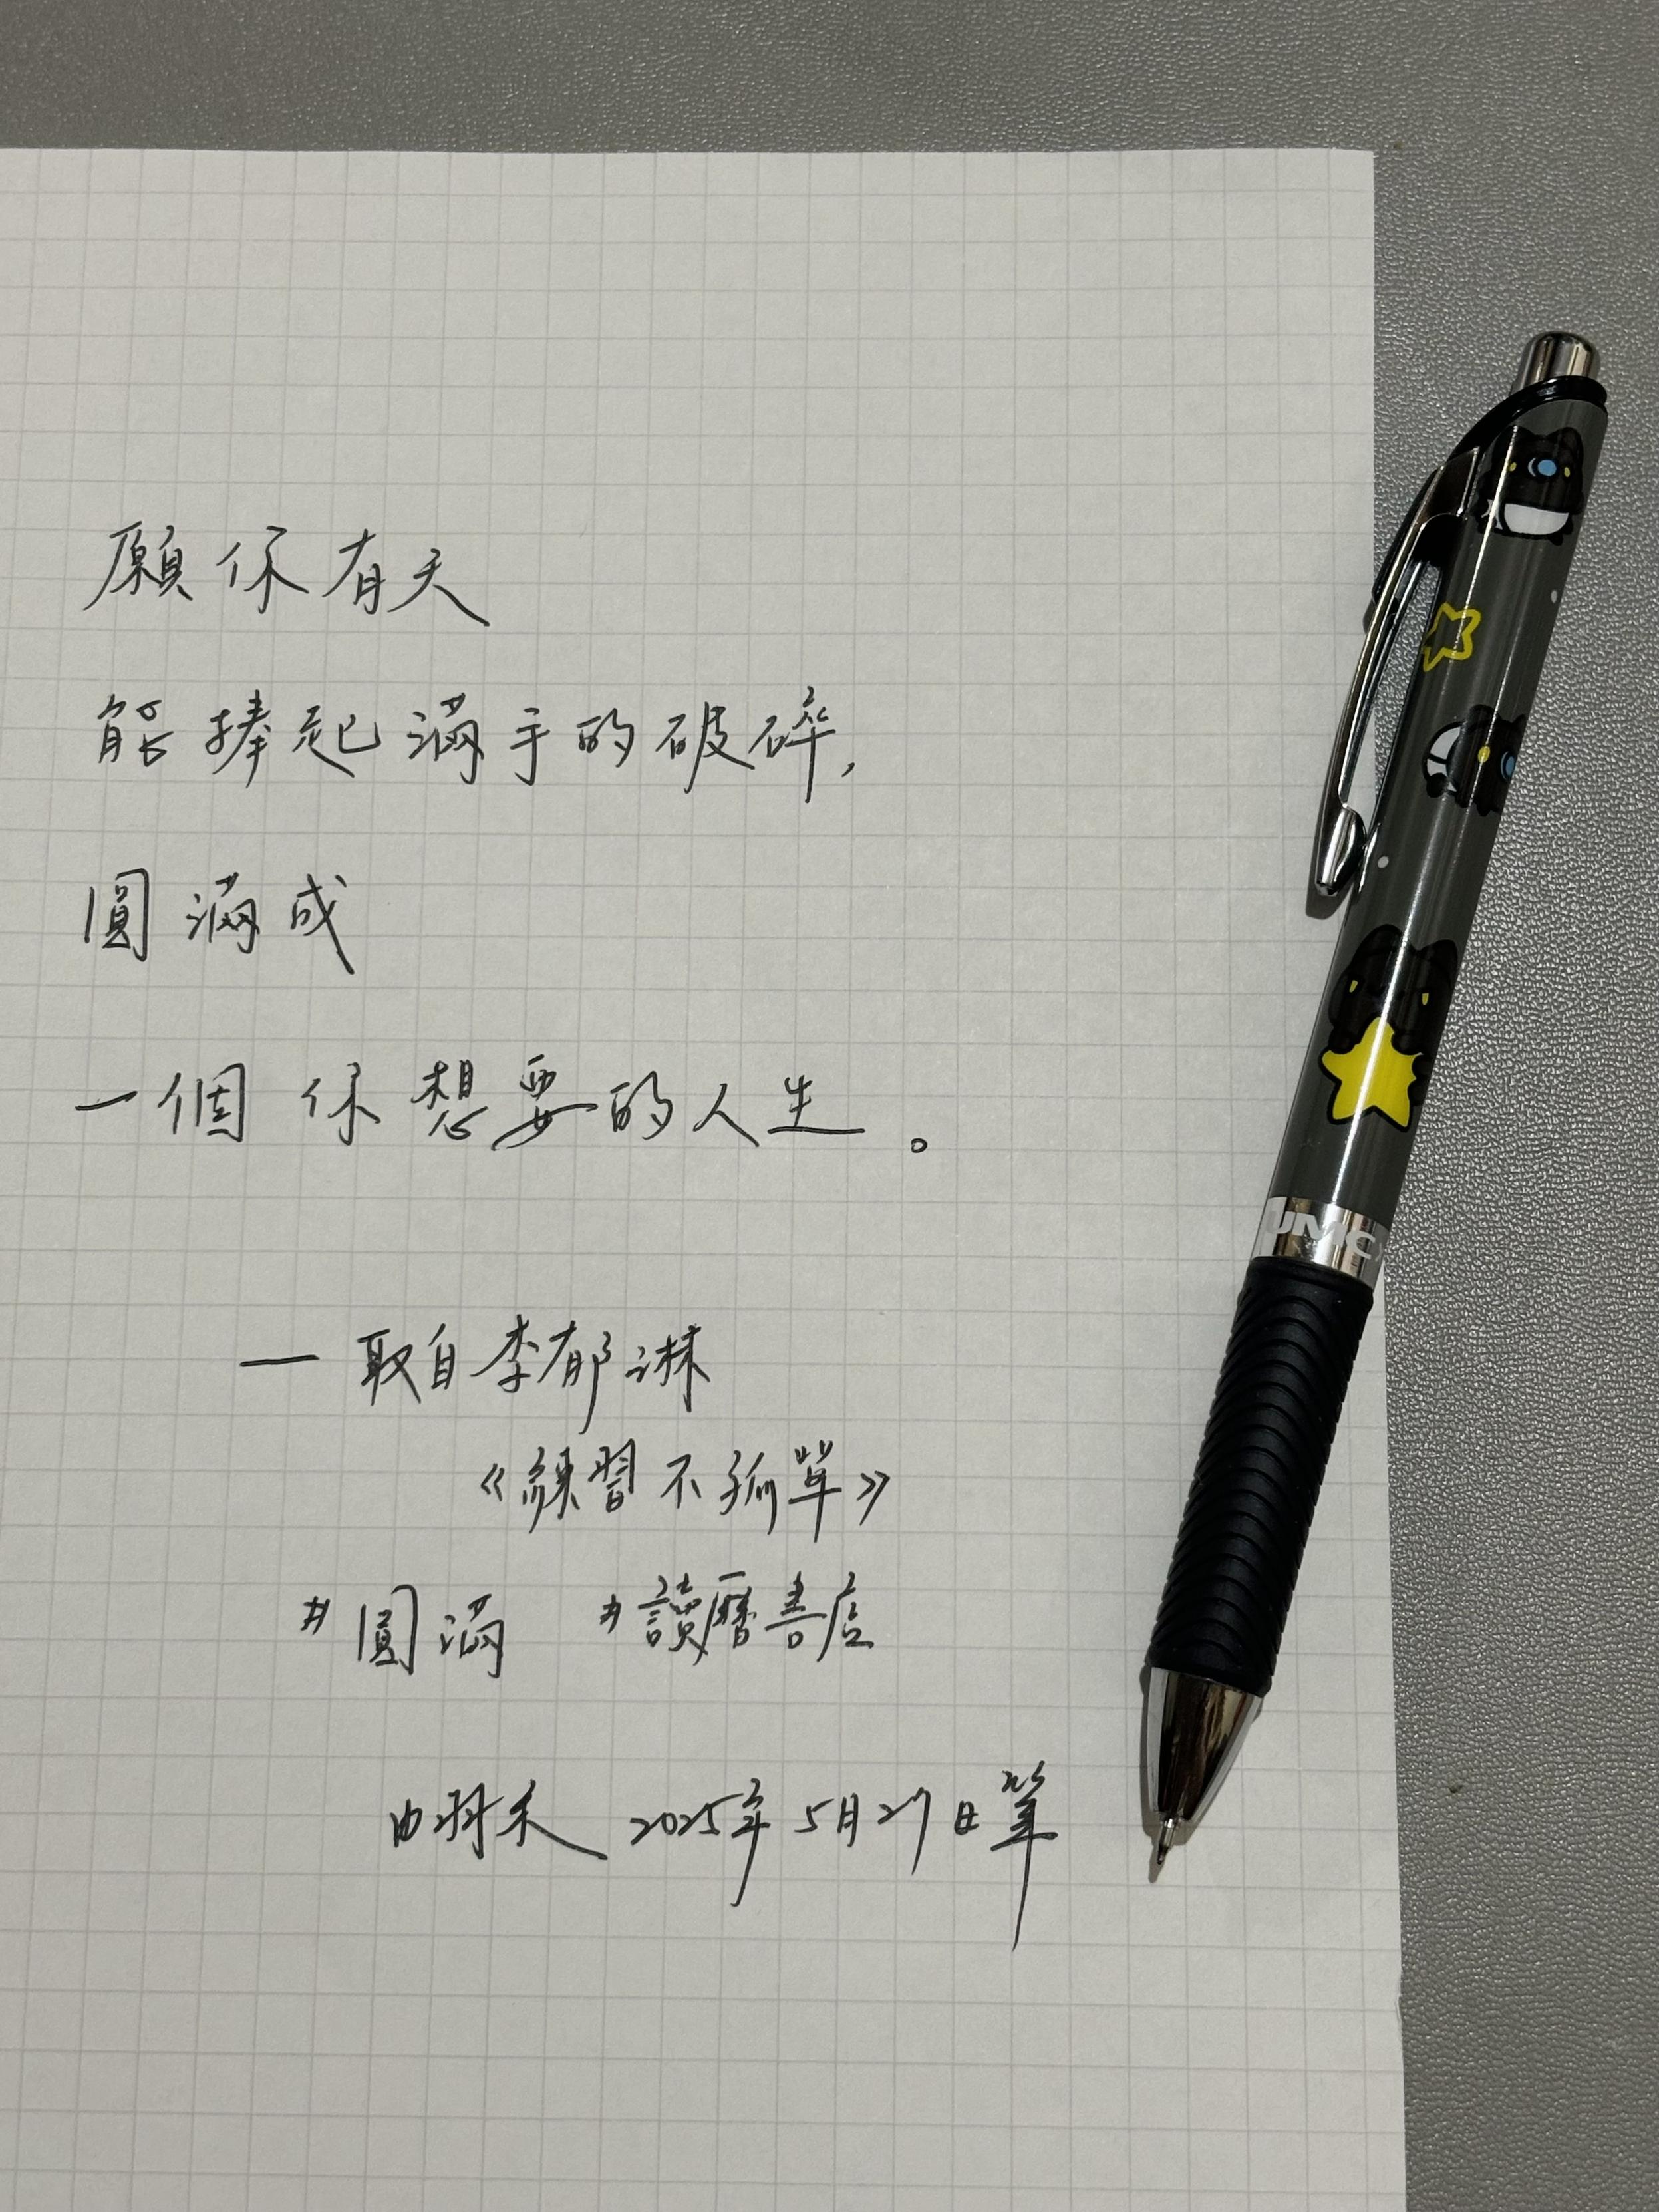 願你有天
能捧起滿手的破碎,
圓滿成
一個你想要的人生。
— 取自李郁淋
《練習不孤單》
#圓滿 #讀曆書店
由羽禾 2025年5月27日筆